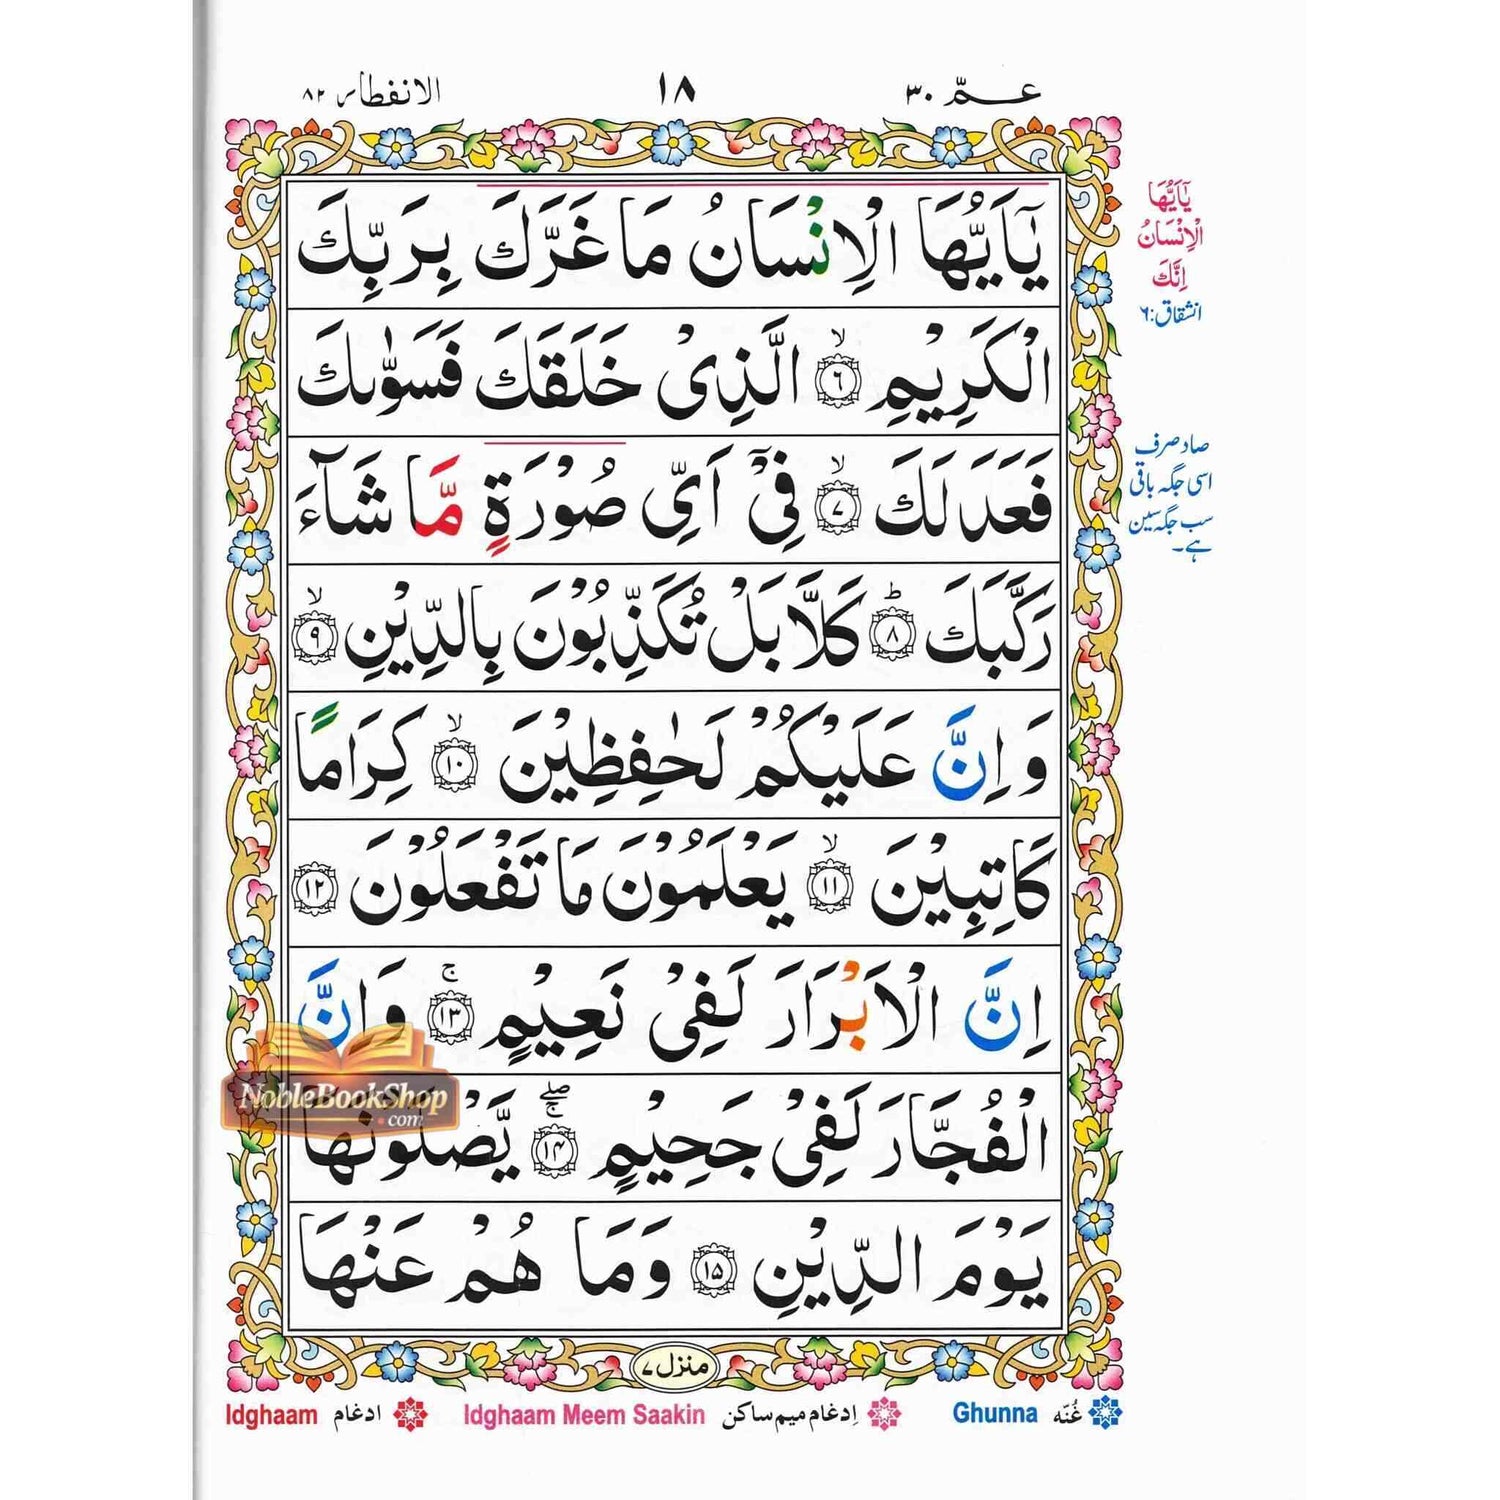 عـــمّ ٣٠
١٨
الانفطار ٨٢
يٰۤاَيُّهَا الْاِنْسَانُ مَا غَرَّكَ بِرَبِّكَ
الْكَرِيْمِ ۙ﴿٦﴾ الَّذِیْ خَلَقَكَ فَسَوّٰىكَ
فَعَدَلَكَ ۙ﴿٧﴾ فِیْۤ اَیِّ صُوْرَةٍ مَّا شَآءَ
رَكَّبَكَ ؕ﴿٨﴾ كَلَّا بَلْ تُكَذِّبُوْنَ بِالدِّيْنِ ۙ﴿٩﴾
وَ اِنَّ عَلَيْكُمْ لَحٰفِظِيْنَ ۙ﴿١٠﴾ كِرَامًا
كَاتِبِيْنَ ۙ﴿١١﴾ يَعْلَمُوْنَ مَا تَفْعَلُوْنَ ﴿١٢﴾
اِنَّ الْاَبْرَارَ لَفِیْ نَعِيْمٍ ۚ﴿١٣﴾ وَ اِنَّ
الْفُجَّارَ لَفِیْ جَحِيْمٍ ۚۖ﴿١٤﴾ يَّصْلَوْنَهَا
يَوْمَ الدِّيْنِ ﴿١٥﴾ وَ مَا هُمْ عَنْهَا
يٰۤاَيُّهَا
الْاِنْسَانُ
اِنَّكَ
انشقاق:٦
صاد صرف
اسی جگہ باقی
سب جگہ سین
ہے۔
NobleBookShop
.com
منزل ٧
غُنّہ Ghunna
اِدغام میم ساکن Idghaam Meem Saakin
ادغام Idghaam